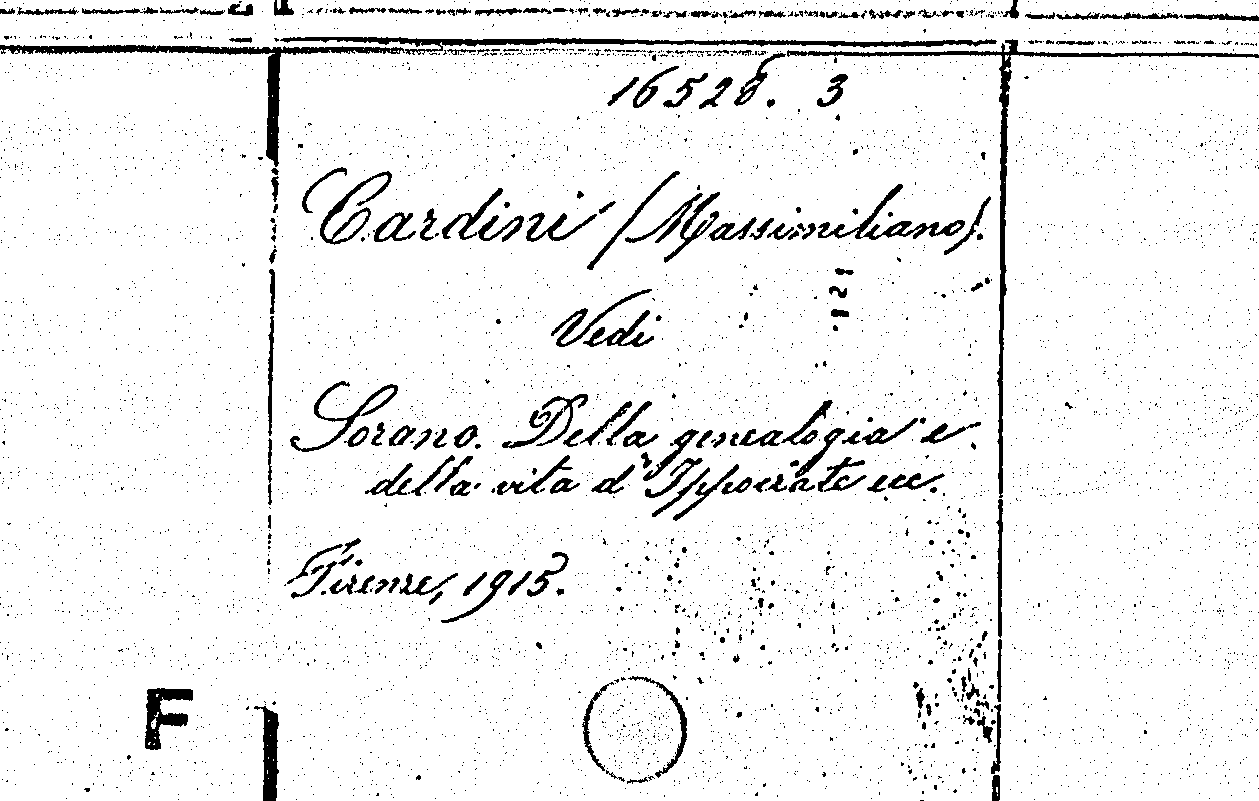 16528. 3
Cardini (Massimiliano).
Vedi
Sorano. Della genealogia e
della vita d'Ippocrate ecc.
Firenze, 1915.
F